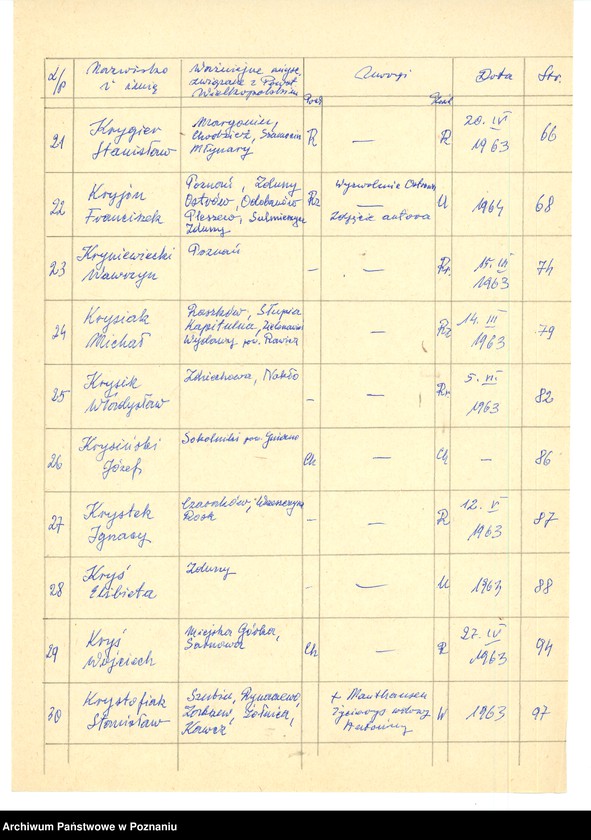 L/p Nazwisko i imię Ważniejsze miejsc. związane z Powst. Wielkopolskim Uwagi Data Str.
21 Krygier Stanisław Margonin, Chodzież, Szamocin Młynary R — R 20. IV 1963 66
22 Kryjón Franciszek Poznań, Zduny Ostrów, Odolanów Pleszew, Sulmierzyce Zduny Rz Wyzwolenie Ostrowa — Zdjęcie autora U 1964 68
23 Kryniewiecki Wawrzyn Poznań – — 15. III 1963 74
24 Krysiak Michał Roszków, Słupia Kapitulna, Zielonawieś Wydawy pow. Rawicz — Rz 14. III 1963 79
25 Krysik Władysław Zdziechowa, Nakło – — 1963 82
26 Krysiński Józef pow. Gniezno Ch — Ch — 86
27 Krystek Ignacy Czarnków, Rosk – — R 12. V 1963 87
28 Kryś Elżbieta Zduny – — U 1963 88
29 Kryś Wojciech Miejska Górka, Sarnowa Ch — R 27. IV 1963 94
30 Krystofiak Stanisław Szubin, Rynarzewo, Żołnica, Kawcz + Mauthausen Życiorys wdowy Antoniny W 1963 97
Archiwum Państwowe w Poznaniu